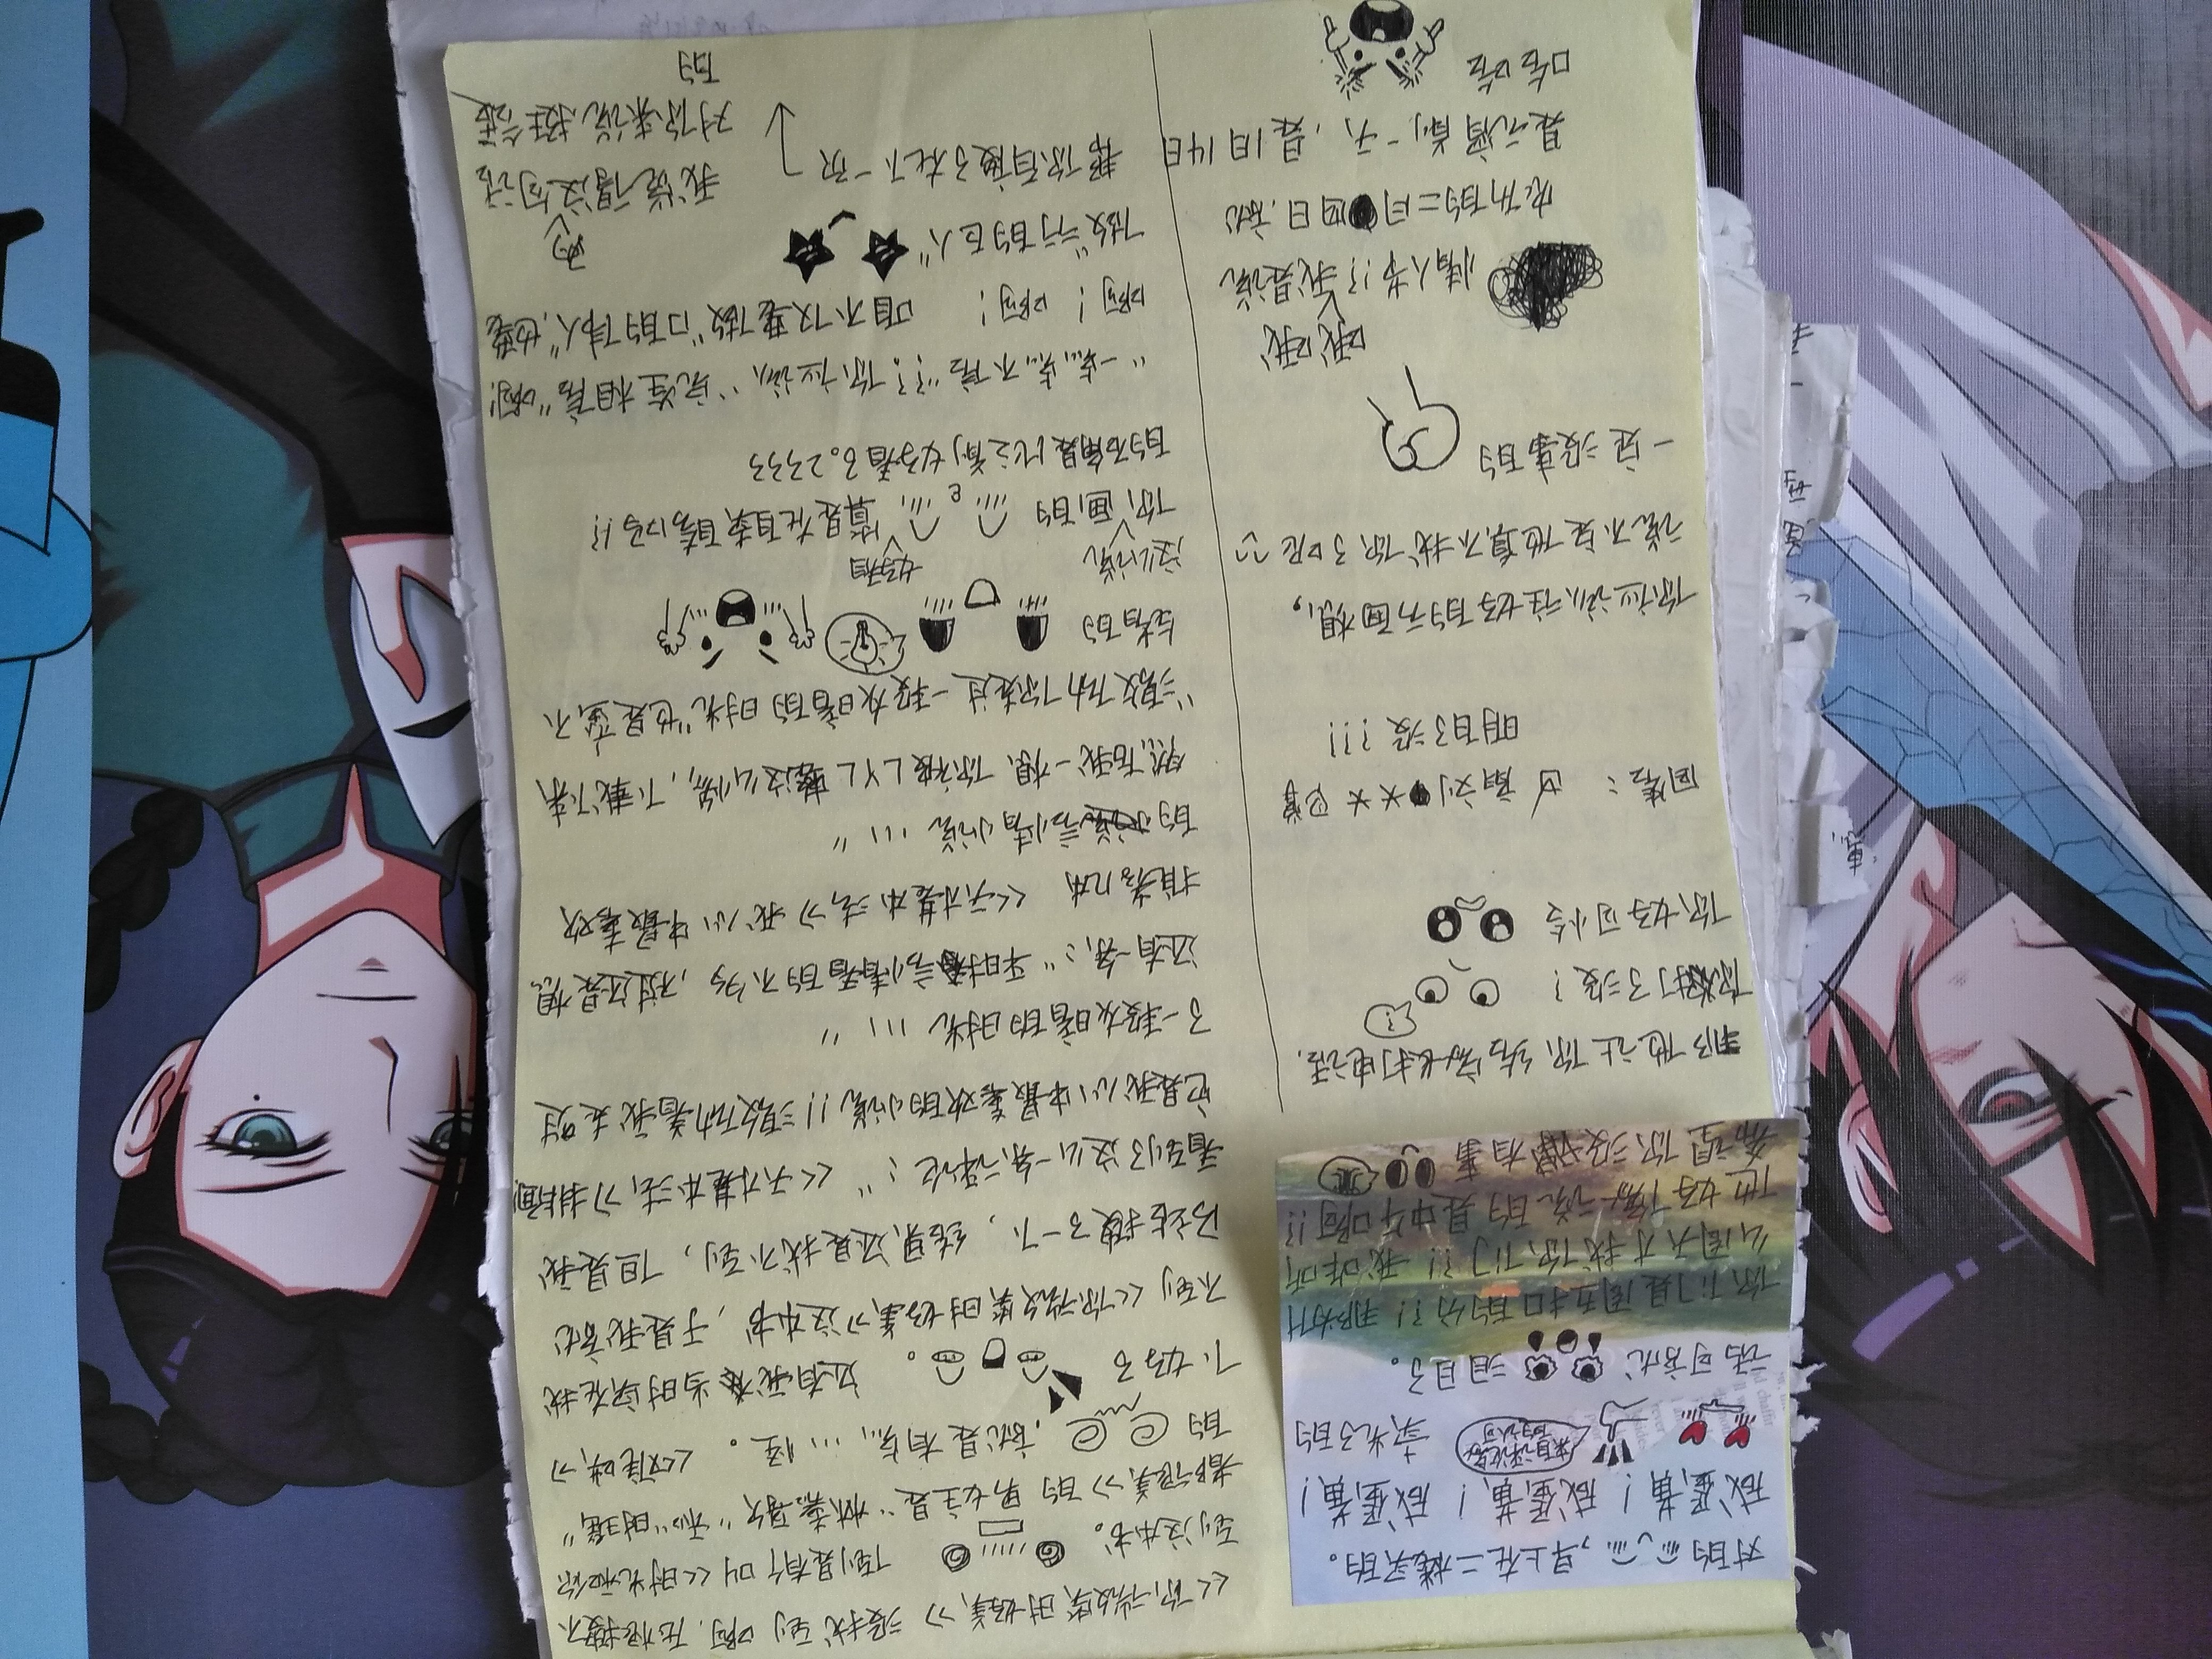 对的,早上在二楼买的。
咸蛋黄!咸蛋黄!咸蛋黄!
来自评论家
的认可
卖光了的
话可就泪目了。
你们是周五扣的分?!那为什
么周天才找你们?!我咋听
他好像说的是中午啊!?
希望你没有事
那他让你给家长打电话,
你打了没?
?
你好可怜
回答: 扇刘**巴掌
明白了没???
你应该往好的方面想,
说不定他真不找你了呢
一定没事的
哦哦
情人节!?我是说
农历的二月四日,就
是元宵前一天,是1月14日
哈哈
《你微笑时好美》没找到啊,压根搜不
到这本书。倒是有个叫《时光和你
都很美》的男女主是“林嘉歌”和“时瑶”
的,就是有点…怪。《难哄》
下好了。还有我当时实在找
不到《你微笑时好美》这本书,于是我就
B站搜了一下,结果还是找不到,但是我
看到了这么一条评论:“《天才基本法》排面!
它是我心中最喜欢的小说!!激励着我走过
了一段灰暗的时光…”
还有一条:“平时言情看的不多,不过还是想
推荐几本《天才基本法》我心中最喜欢
的言情小说…”
然后我一想,你被LYL整这么惨,下载下来
“激励你走过一段灰暗的时光”也是蛮不
错的
这么说 好看
你画的算是在自卖自夸吗!?
的确是比之前好看了。2333
“一点点不信”??你应该“完全相信”啊!
啊!啊!咱不仅要做“口的伟人”,也要
做“行的巨人”
帮你百度了在下一页
两
我觉得这句话
对你来说挺合适
的
惠